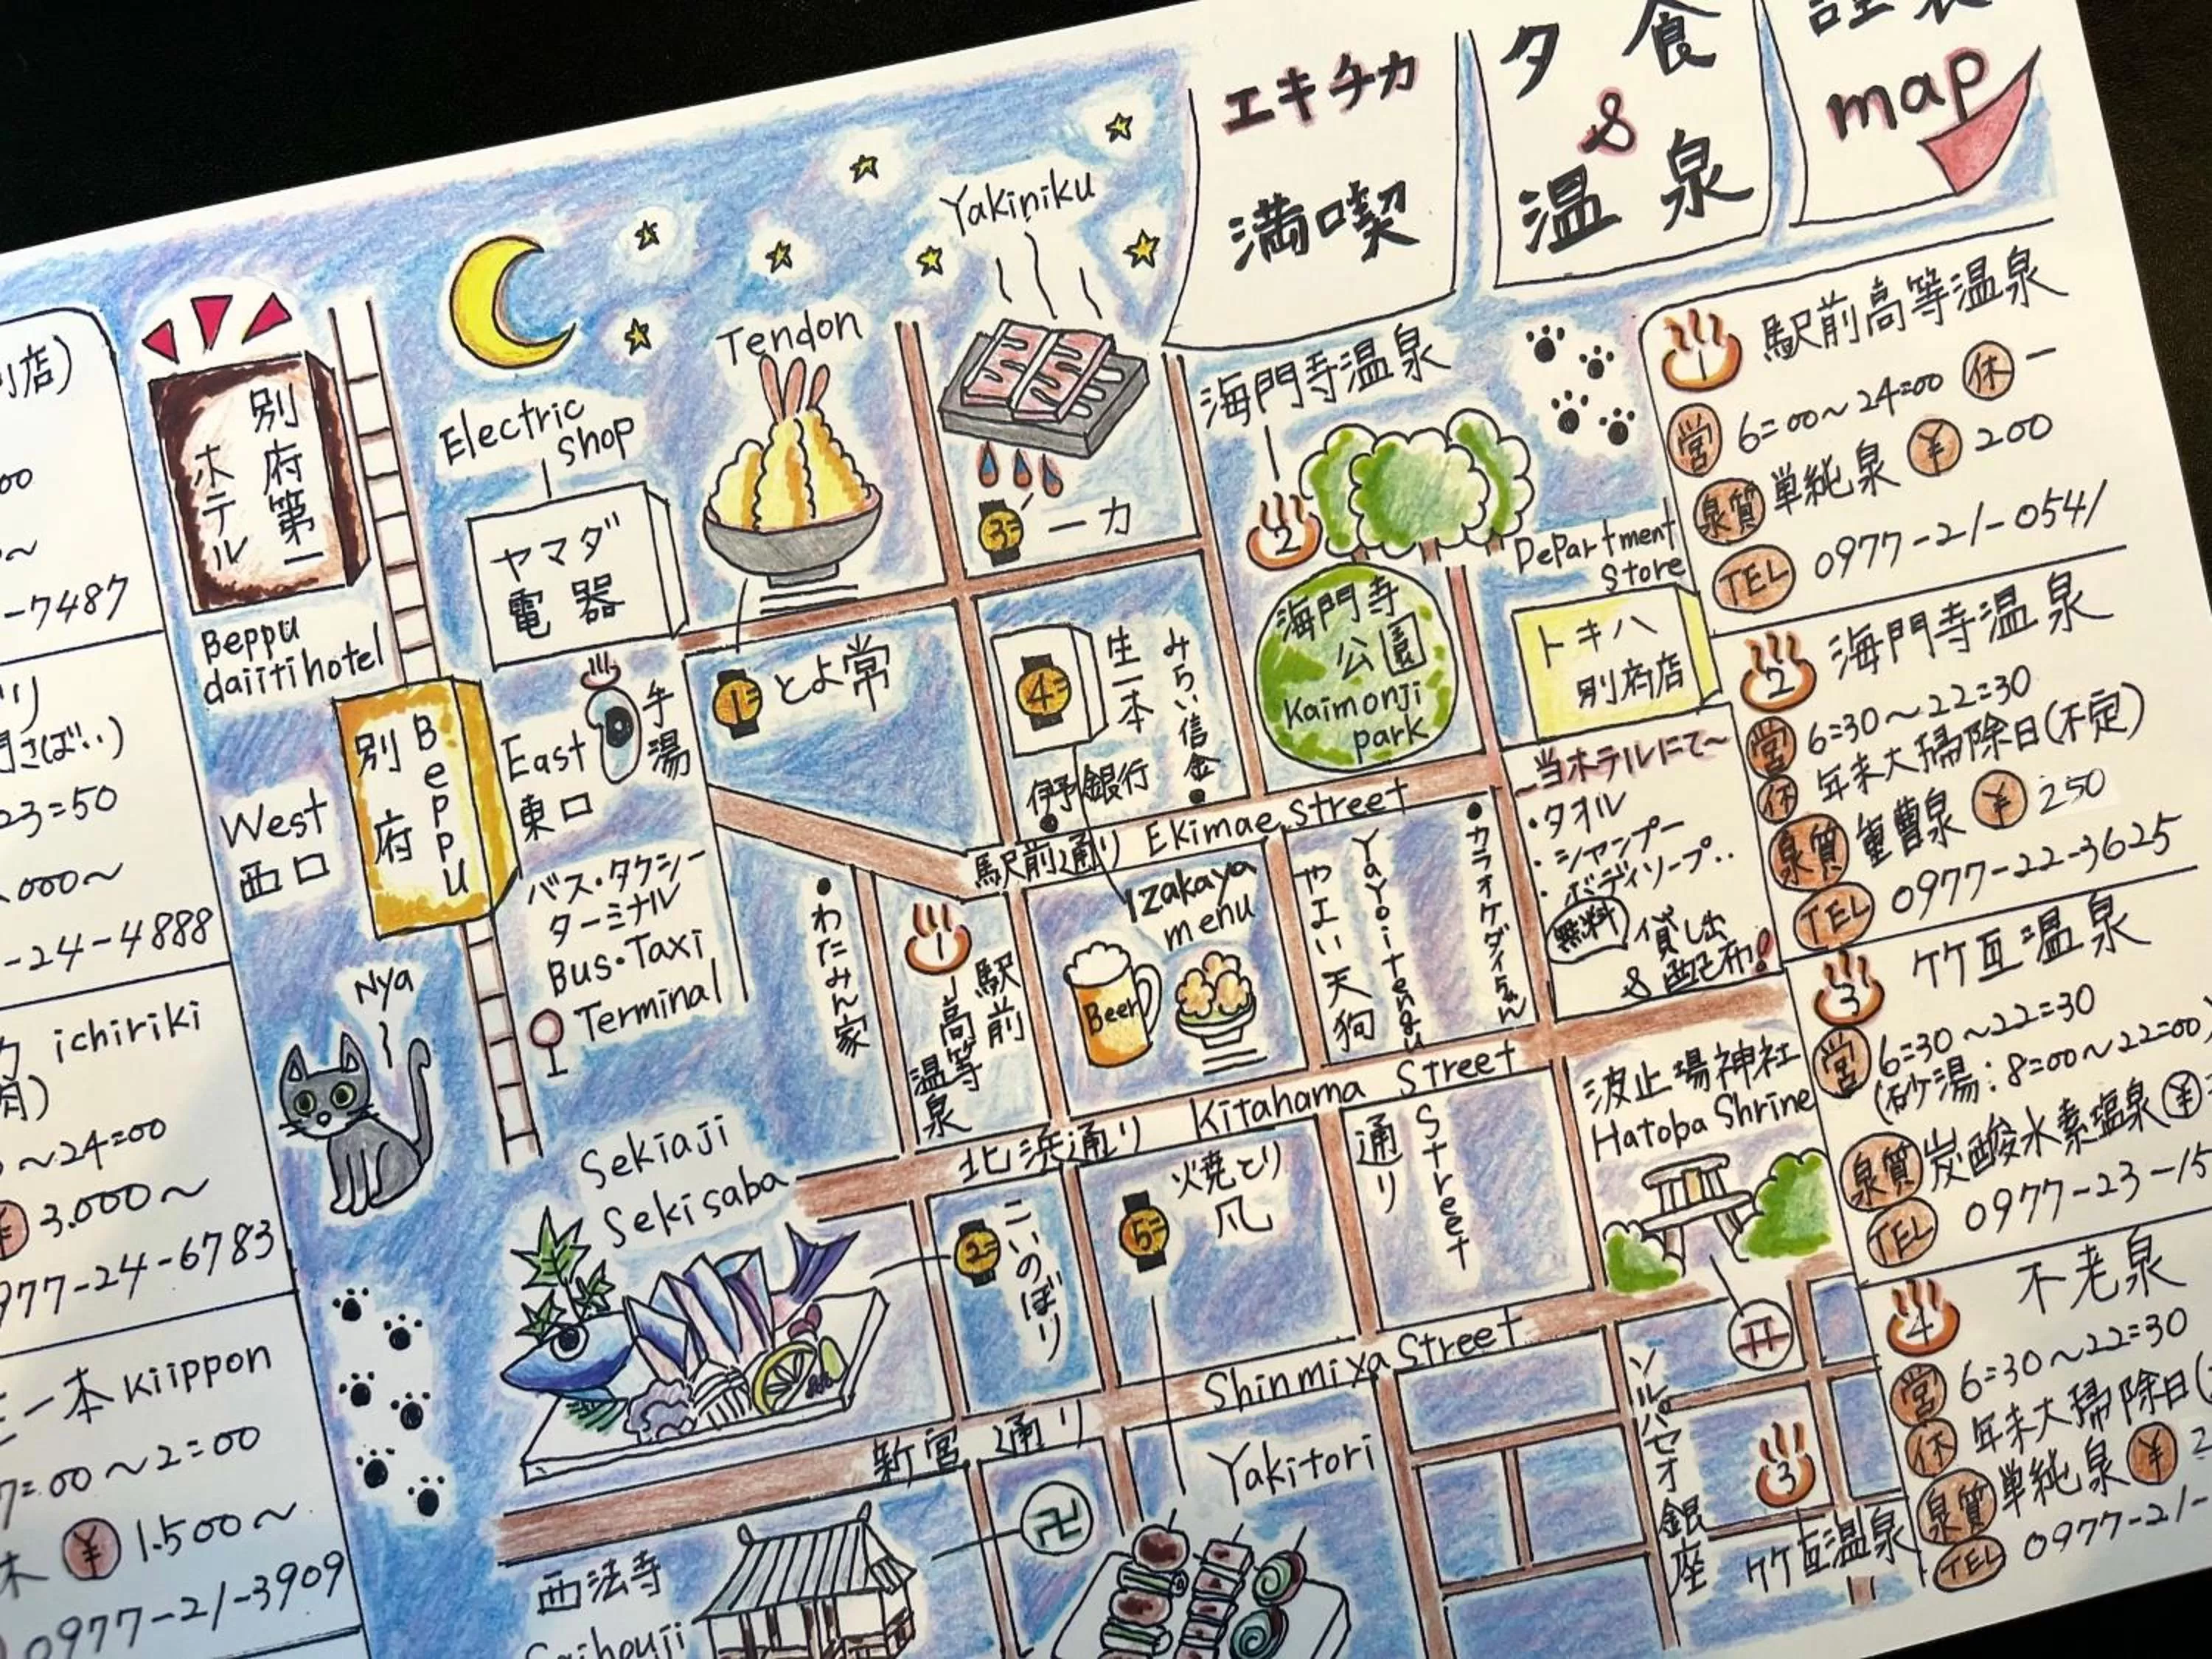 エキチカ
満喫
夕食
&
温泉
map
店)
00
~
-7487
23=50
.000~
-24-4888
ichiriki
~24=00
¥ 3.000~
977-24-6783
一本 Kiippon
7=00~2=00
¥ 1.500~
0977-21-3909
別府第一
ホテル
Beppu
daiitihotel
Electric
shop
ヤマダ
電器
Tendon
Yakiniku
3= 一力
1= とよ常
4= 生一本
みらい信金
伊予銀行
海門寺温泉
2
海門寺
公園
Kaimonji
park
Department
Store
トキハ
別府店
別府
Beppu
West
西口
East
東口
手湯
バス・タクシー
ターミナル
Bus・Taxi
Terminal
Nya
わたみん家
1
駅前
高等
温泉
駅前通り Ekimae Street
Izakaya
menu
Beer
やよい天狗
Yayoitengu
カラオケダイちゃん
~当ホテルにて~
・タオル
・シャンプー
・ボディソープ‥
無料 貸し出
& 配布!
北浜通り Kitahama Street
通り
Street
波止場神社
Hatoba Shrine
Sekiaji
Sekisaba
2= こいのぼり
5= 火焼とり
凡
新宮通り Shinmiya Street
ソルパセオ銀座
3
竹瓦温泉
西法寺
Saihouji
卍
Yakitori
1 駅前高等温泉
営 6=00~24=00 休 一
泉質 単純泉 ¥ 200
TEL 0977-21-0541
2 海門寺温泉
営 6=30~22=30
休 年末大掃除日(不定)
泉質 重曹泉 ¥ 250
TEL 0977-22-3625
3 竹瓦温泉
営 6=30~22=30
(砂湯:8=00~22=00)
泉質 炭酸水素塩泉 ¥
TEL 0977-23-15
4 不老泉
営 6=30~22=30
休 年末大掃除日(
泉質 単純泉 ¥ 2
TEL 0977-21-